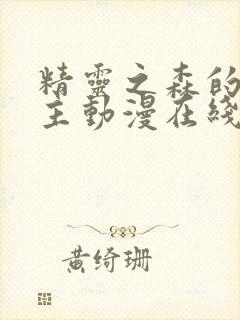 精靈之森的
主動漫在綫
黄绮珊